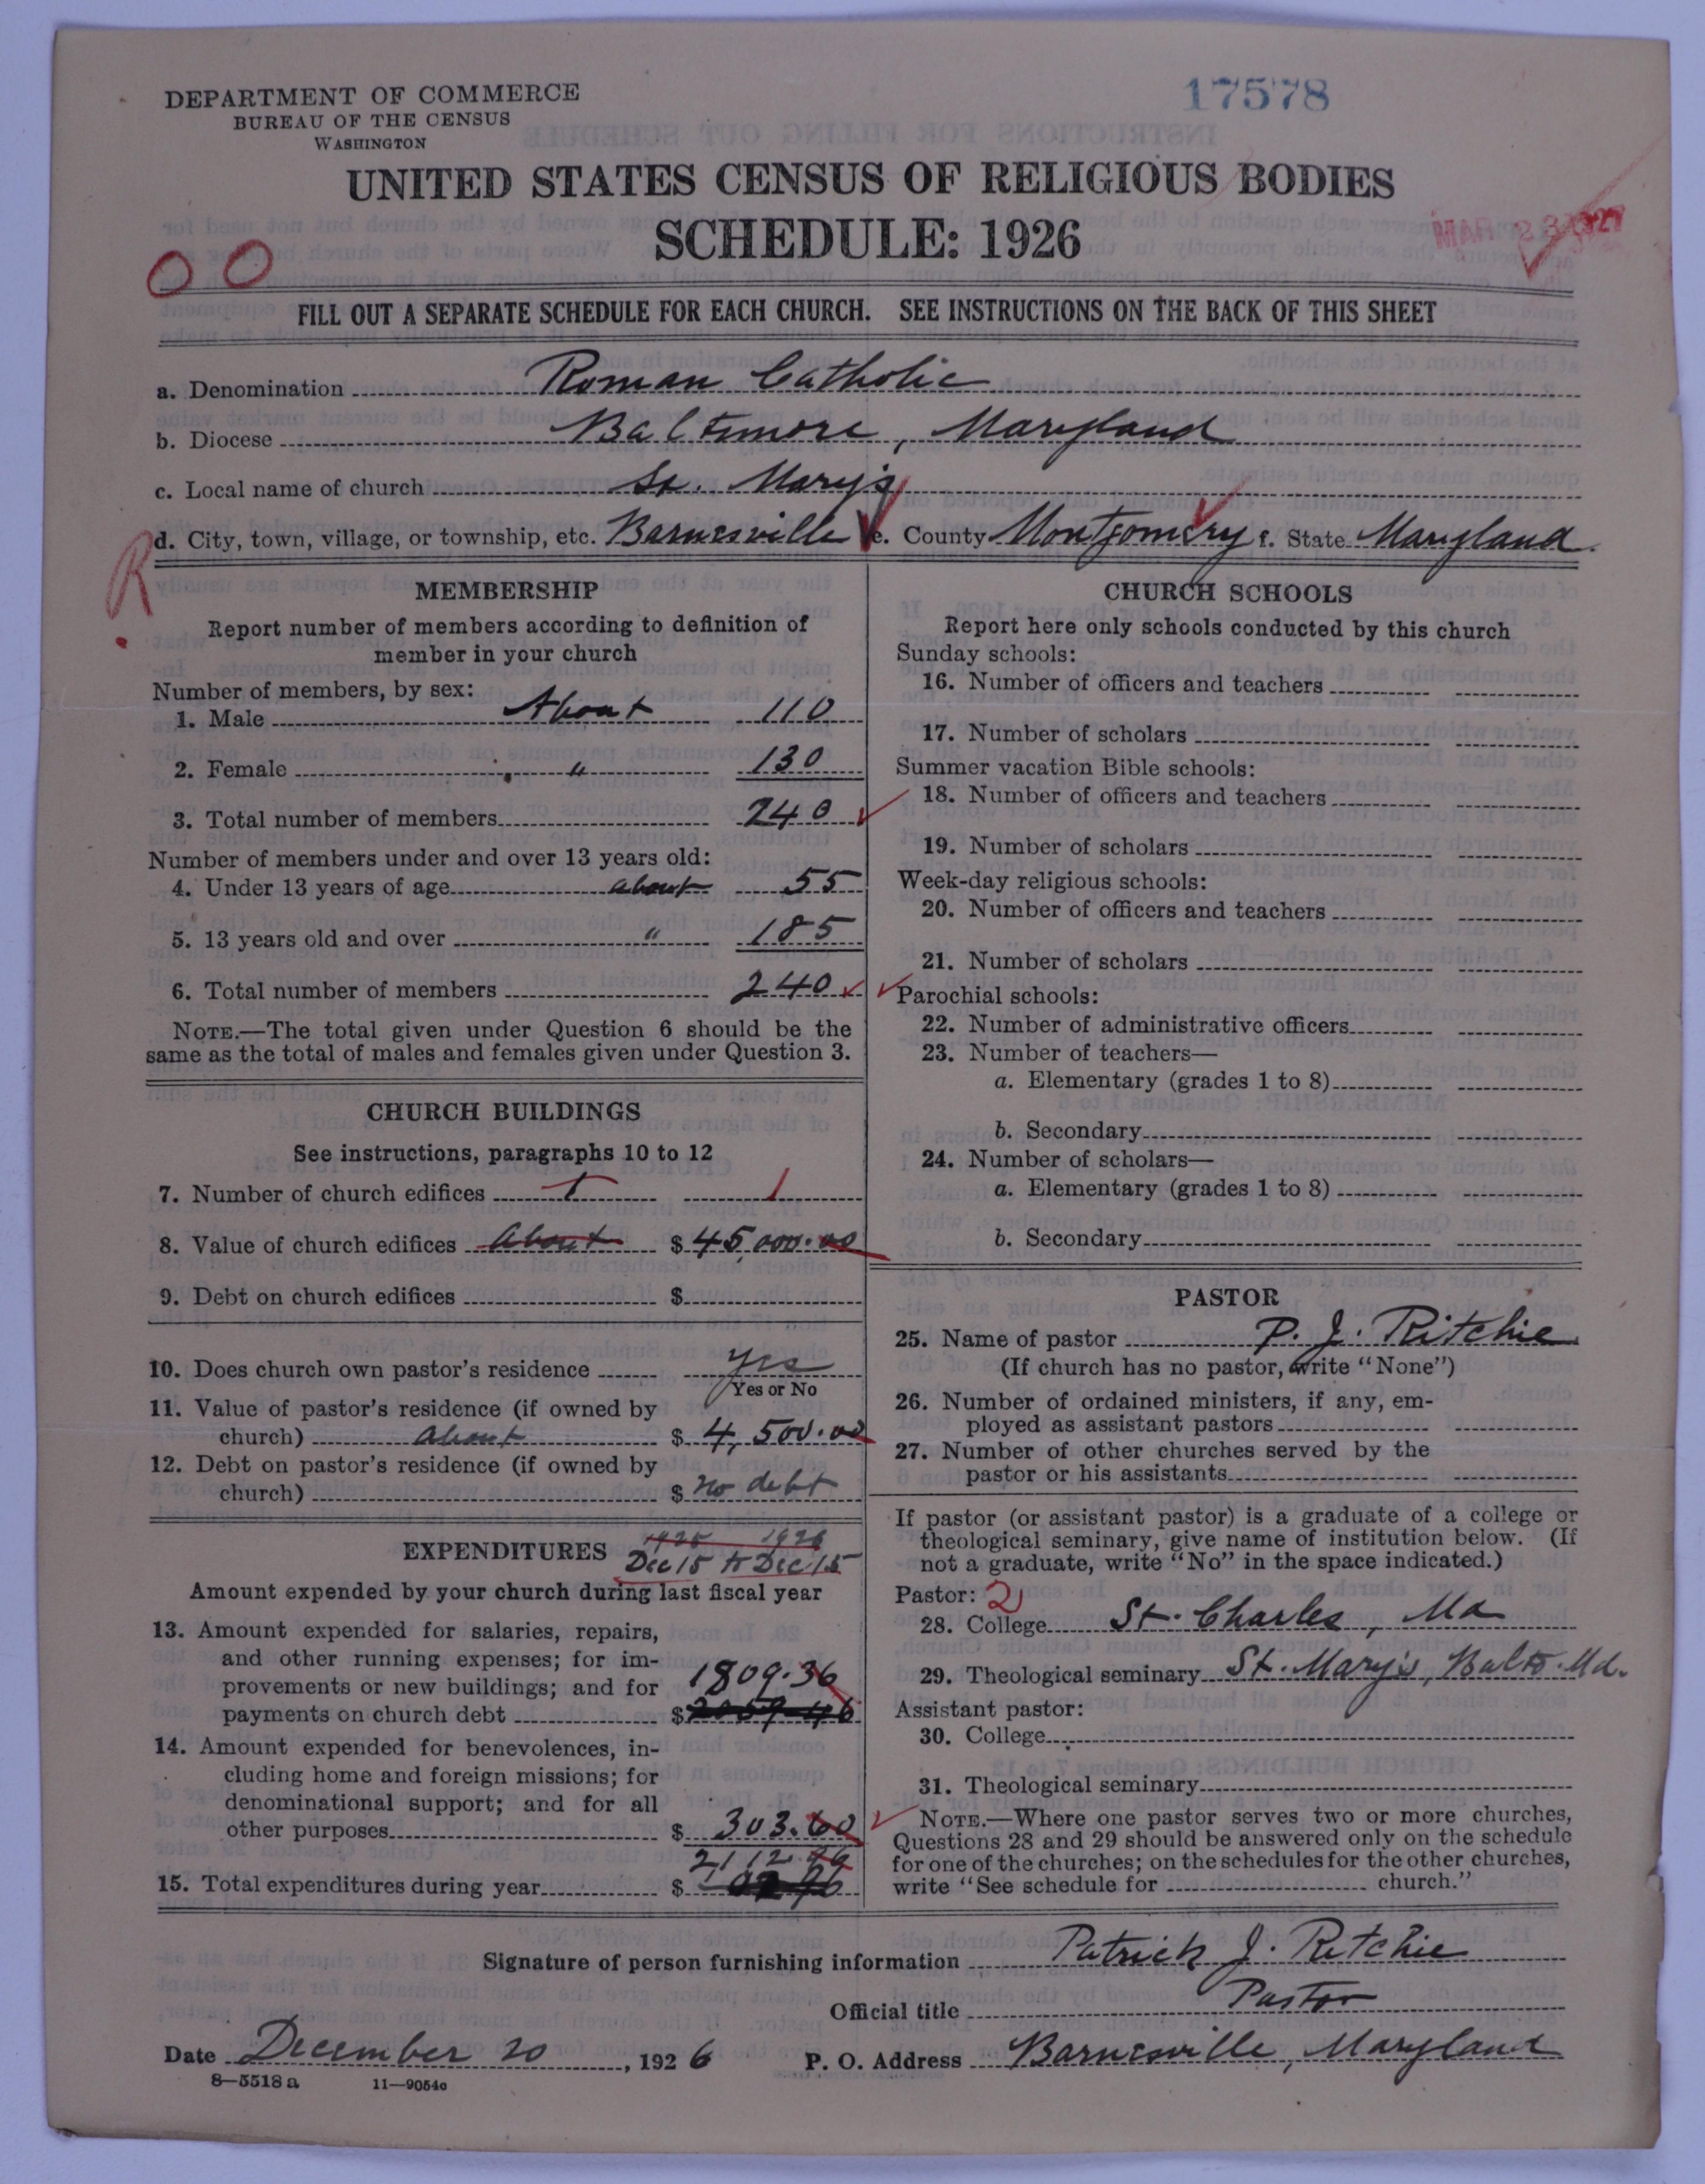 17578
DEPARTMENT OF COMMERCE
BUREAU OF THE CENSUS
WASHINGTON
UNITED STATES CENSUS OF RELIGIOUS BODIES
SCHEDULE: 1926
MAR 23 1927
OO
FILL OUT A SEPARATE SCHEDULE FOR EACH CHURCH. SEE INSTRUCTIONS ON THE BACK OF THIS SHEET
a. Denomination Roman Catholic
b. Diocese Baltimore, Maryland
c. Local name of church St. Mary's
d. City, town, village, or township, etc. Barnesville e. County Montgomery f. State Maryland
R
MEMBERSHIP
Report number of members according to definition of
member in your church
Number of members, by sex:
1. Male About 110
2. Female " 130
3. Total number of members 240
Number of members under and over 13 years old:
4. Under 13 years of age about 55
5. 13 years old and over " 185
6. Total number of members 240
NOTE.—The total given under Question 6 should be the
same as the total of males and females given under Question 3.
CHURCH BUILDINGS
See instructions, paragraphs 10 to 12
7. Number of church edifices 1 1
8. Value of church edifices About $ 45000.00
9. Debt on church edifices $
10. Does church own pastor's residence yes
Yes or No
11. Value of pastor's residence (if owned by
church) about $ 4,500.00
12. Debt on pastor's residence (if owned by
church) $ no debt
EXPENDITURES 1925 1926
Dec 15 to Dec 15
Amount expended by your church during last fiscal year
13. Amount expended for salaries, repairs,
and other running expenses; for im-
provements or new buildings; and for 1809.36
payments on church debt $
14. Amount expended for benevolences, in-
cluding home and foreign missions; for
denominational support; and for all
other purposes $ 303.60
2112.96
15. Total expenditures during year $
CHURCH SCHOOLS
Report here only schools conducted by this church
Sunday schools:
16. Number of officers and teachers
17. Number of scholars
Summer vacation Bible schools:
18. Number of officers and teachers
19. Number of scholars
Week-day religious schools:
20. Number of officers and teachers
21. Number of scholars
Parochial schools:
22. Number of administrative officers
23. Number of teachers—
a. Elementary (grades 1 to 8)
b. Secondary
24. Number of scholars—
a. Elementary (grades 1 to 8)
b. Secondary
PASTOR
25. Name of pastor P. J. Ritchie
(If church has no pastor, write "None")
26. Number of ordained ministers, if any, em-
ployed as assistant pastors
27. Number of other churches served by the
pastor or his assistants
If pastor (or assistant pastor) is a graduate of a college or
theological seminary, give name of institution below. (If
not a graduate, write "No" in the space indicated.)
Pastor: 2
28. College St. Charles, Md
29. Theological seminary St. Mary's, Balto. Md.
Assistant pastor:
30. College
31. Theological seminary
NOTE.—Where one pastor serves two or more churches,
Questions 28 and 29 should be answered only on the schedule
for one of the churches; on the schedules for the other churches,
write "See schedule for church."
Signature of person furnishing information Patrick J. Ritchie
Official title Pastor
Date December 20, 1926 P. O. Address Barnesville, Maryland
8—5518 a 11—9054c